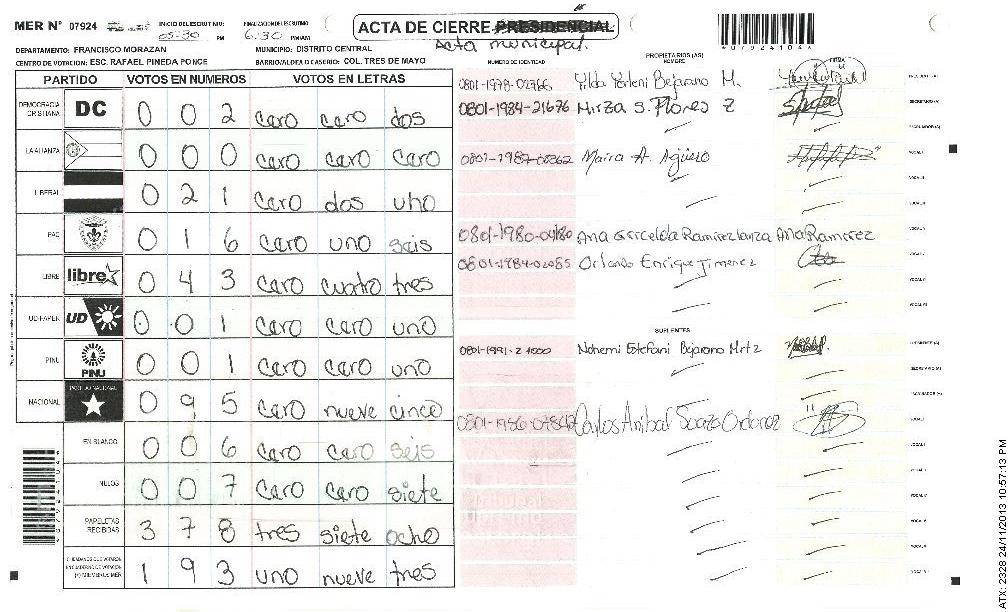 MER N° 07924
INICIO DEL ESCRUTINIO:
05:30 PM
FINALIZACION DEL ESCRUTINIO
6:30 PM/AM
ACTA DE CIERRE PRESIDENCIAL
Acta municipal.
079241044
DEPARTAMENTO: FRANCISCO MORAZAN
MUNICIPIO: DISTRITO CENTRAL
CENTRO DE VOTACION: ESC. RAFAEL PINEDA PONCE
BARRIO/ALDEA O CASERIO: COL. TRES DE MAYO
PARTIDO VOTOS EN NUMEROS VOTOS EN LETRAS
DEMOCRACIA CRISTIANA DC 0 0 2 caro caro dos
LA ALIANZA 0 0 0 caro caro caro
LIBERAL 0 2 1 caro dos uno
PAC 0 1 6 caro uno seis
LIBRE libre 0 4 3 caro cuatro tres
UD-FAPER UD 0 0 1 caro caro uno
PINU PINU 0 0 1 caro caro uno
NACIONAL PARTIDO NACIONAL 0 9 5 caro nueve cinco
EN BLANCO 0 0 6 caro caro seis
NULOS 0 0 7 caro caro siete
PAPELETAS RECIBIDAS 3 7 8 tres siete ocho
CIUDADANOS QUE VOTARON EN CUADERNO DE VOTACION (+) MIEMBROS MER 1 9 3 uno nueve tres
NUMERO DE IDENTIDAD
PROPIETARIOS (AS)
NOMBRE
FIRMA
0801-1978-02766 Yilda Yorleni Bejarano M. PRESIDENTE (A)
0801-1984-21676 Mirza S. Flores Z SECRETARIO (A)
ESCRUTADOR (A)
0801-1987-00362 Maira A. Agüero VOCAL I
VOCAL II
VOCAL III
0801-1980-04180 Ana Gricelda Ramirez lanza Ana Ramirez
0801-1984-02085 Orlando Enrique Jimenez
SUPLENTES
0801-1991-21000 Nohemi Estefani Bejarano Mrtz PRESIDENTE (A)
SECRETARIO (A)
ESCRUTADOR (A)
0801-1956-07842 Carlos Anibal Soazo Ordoñez VOCAL I
ATX: 2328 24/11/2013 10:57:13 PM